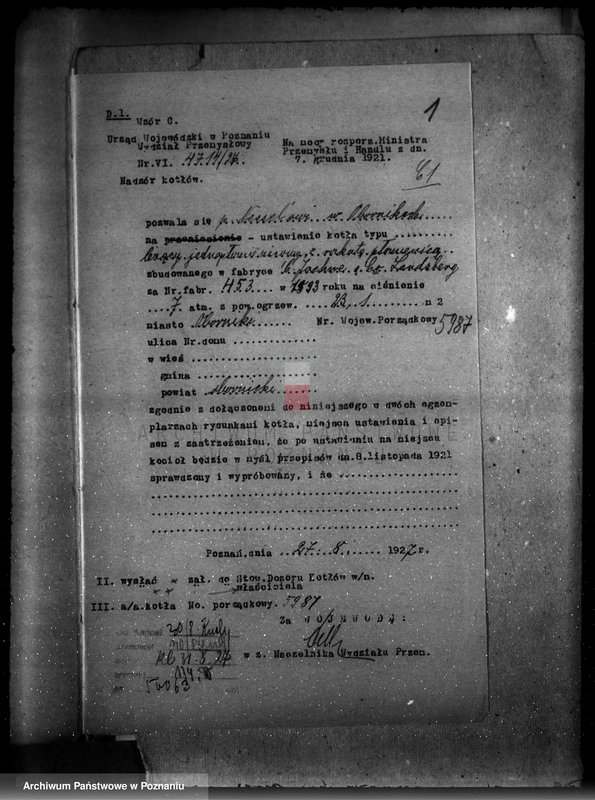 1
D.1.
Wzór C.
Urząd Wojewódzki w Poznaniu
Wydział Przemysłowy
Nr.VI. 4714/26.
Nadzór kotłów.
Na mocy rozporz.Ministra
Przemysłu i Handlu z dn.
7. grudnia 1921.
C1
pozwala się p. w Obornikach
na przeniesienie - ustawienie kotła typu
leżący jednopłomienicowy z
zbudowanego w fabryce Landsberg
za Nr.fabr. 453 w 1893 roku na ciśnienie
7. atm. z pow.ogrzew. 23,1 m 2
miasto Oborniki Nr. Wojew.Porządkowy 5987
ulica Nr.domu
w wieś
gmina
powiat obornicki
zgodnie z dołączonemi do niniejszego w dwóch egzem-
plarzach rysunkami kotła, miejsca ustawienia i opi-
sem z zastrzeżeniem, że po ustawieniu na miejscu
kocioł będzie w myśl przepisów dn.8.listopada 1921
sprawdzony i wypróbowany, i że
Poznań,dnia 27. 8. 1927 r.
II. wysłać zał. do Stow.Dozoru Kotłów w/m.
właściciela
III. a/a.kotła No. porządkowy. 5987
Za WOJEWODĘ:
w z. Naczelnika Wydziału Przem.
Archiwum Państwowe w Poznaniu